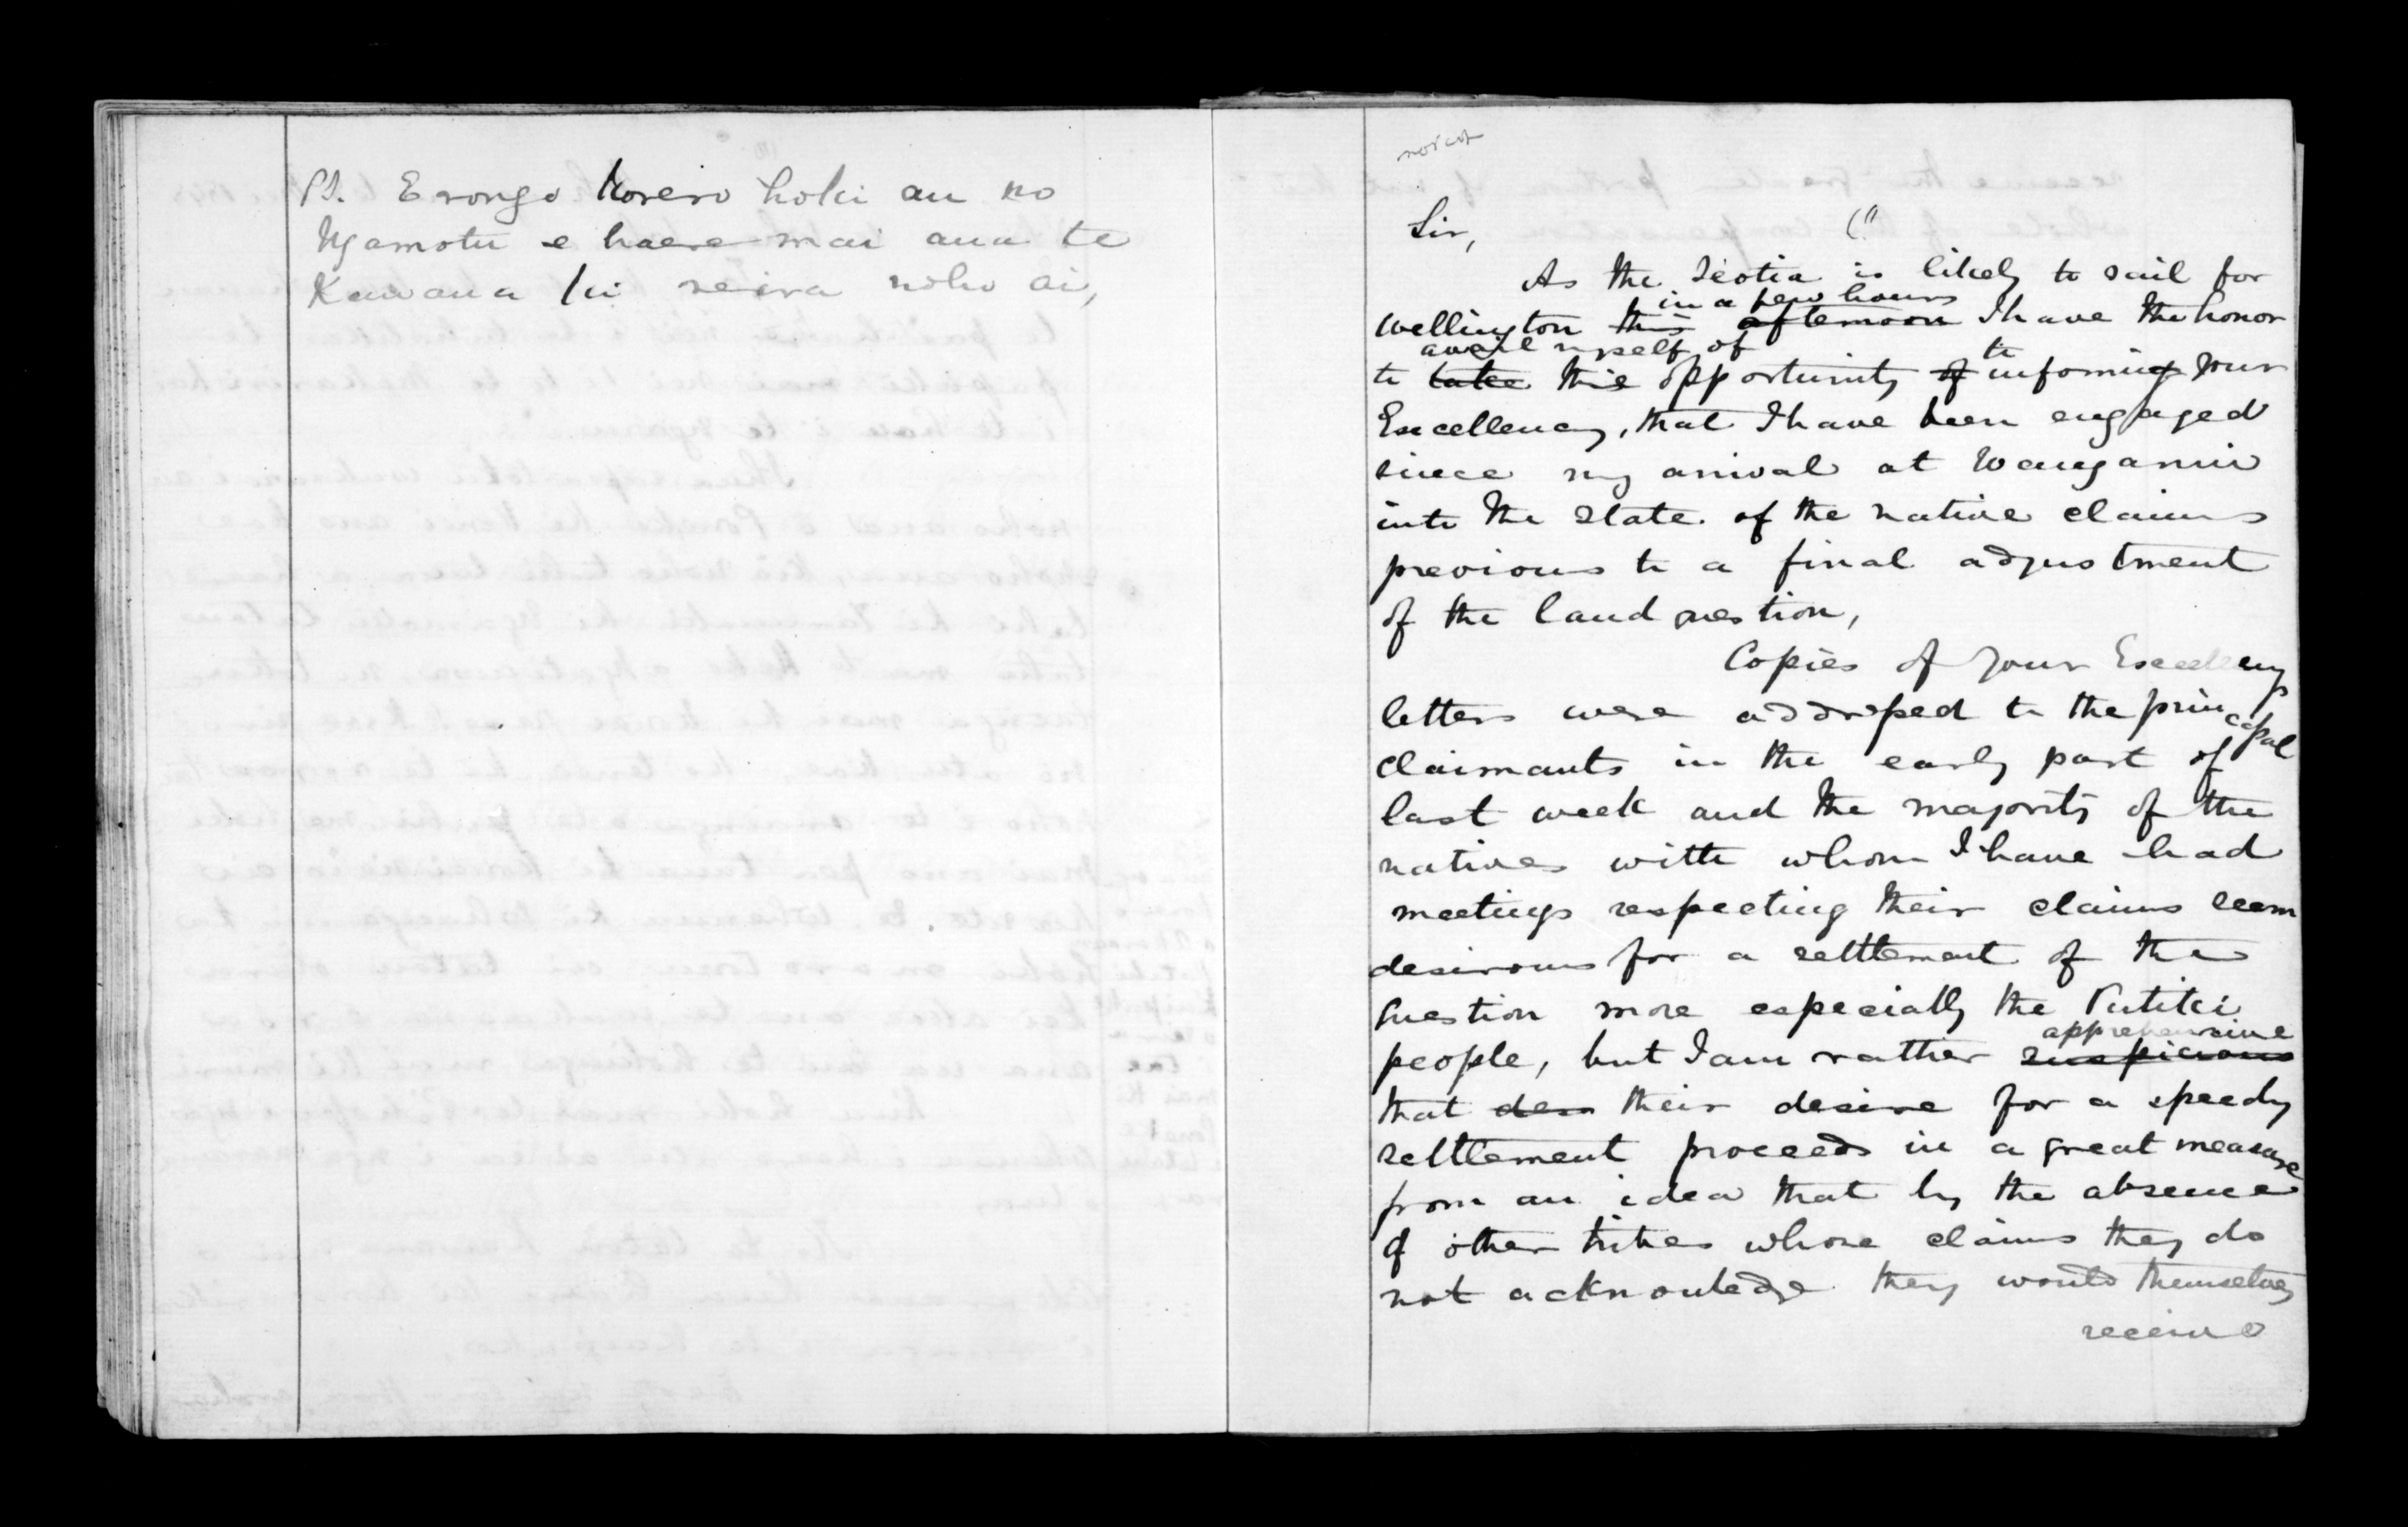 PS. E rongo korero hoki au no
Ngamotu e haere mai ana te
Kawana ki reira noho ai,
not cop
Sir,
As the Scotia is likely to sail for
in a few hours
Wellington this afternoon I have the honor
avail myself of
to take this opportunity of to informing your
Excellency, that I have been engaged
since my arrival at Wanganui
into the state of the native claims
previous to a final adjustment
of the land question,
Copies of your Excellencys
letters were addressed to the principal
claimants in the early part of
last week and the majority of the
natives with whom I have had
meetings respecting their claims seem
desirous for a settlement of the
question more especially the Putiki
apprehensive
people, but I am rather suspicious
that des their desire for a speedy
settlement proceeds in a great measure
from an idea that by the absence
of other tribes whose claims they do
not acknowledge they would themselves
receive